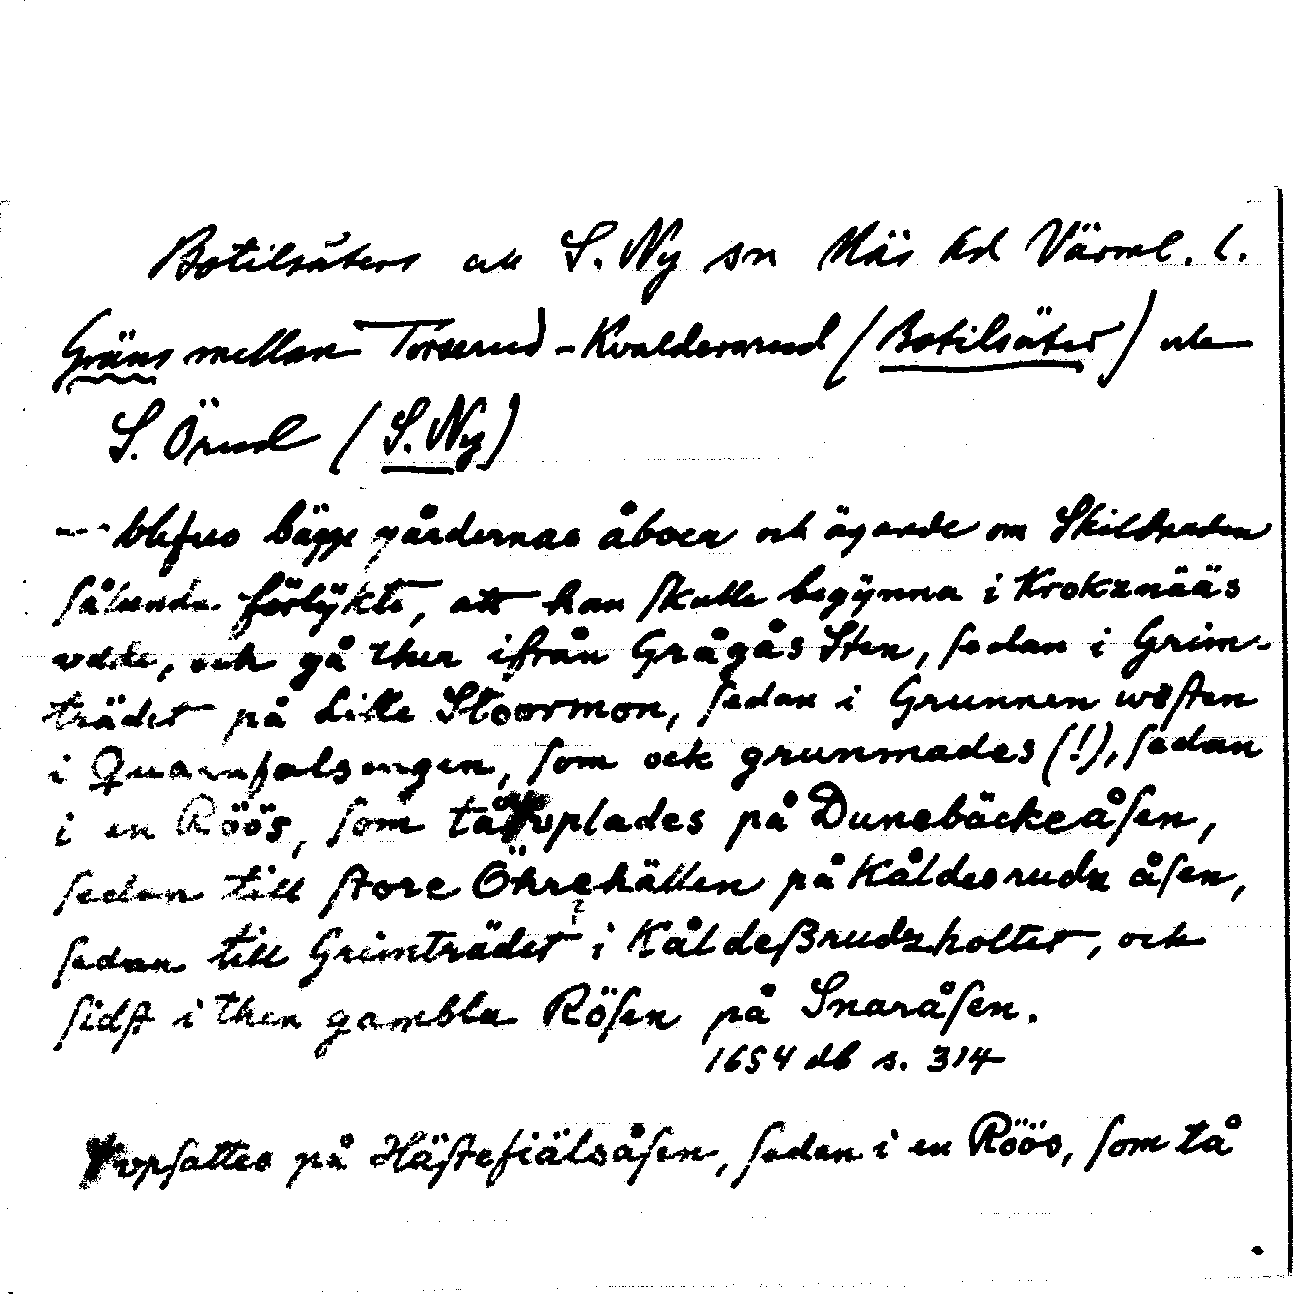 Botilsäters och S. Ny sn Näs hd Värml. l.
Gräns mellan Torserud - Kvaldersrud (Botilsäter) och
S. Örud (S. Ny)
--- blefwo bägge gårdernas åboer och ägande om Skildnaden
sålunda förlÿkte, att han skulle begÿnna i Krokznääs
udde, och gå ther ifrån Grågås Sten, sedan i Grim-
trädet på Lille Stoormon, sedan i Grunnen wästen
i Quarnfalsengen, som och grunmades (!), sedan
i en Röös, som tå uplades på Dunebäckeåsen,
sedan till store Öhrehällen på Kåldesrudz åsen,
sedan till Grimträdet i Kåldeßrudzholtet, och
sidst i then gambla Rösen på Snaråsen.
1654 db s. 314
upsattes på Hästefiälsåsen, sedan i en Röös, som tå